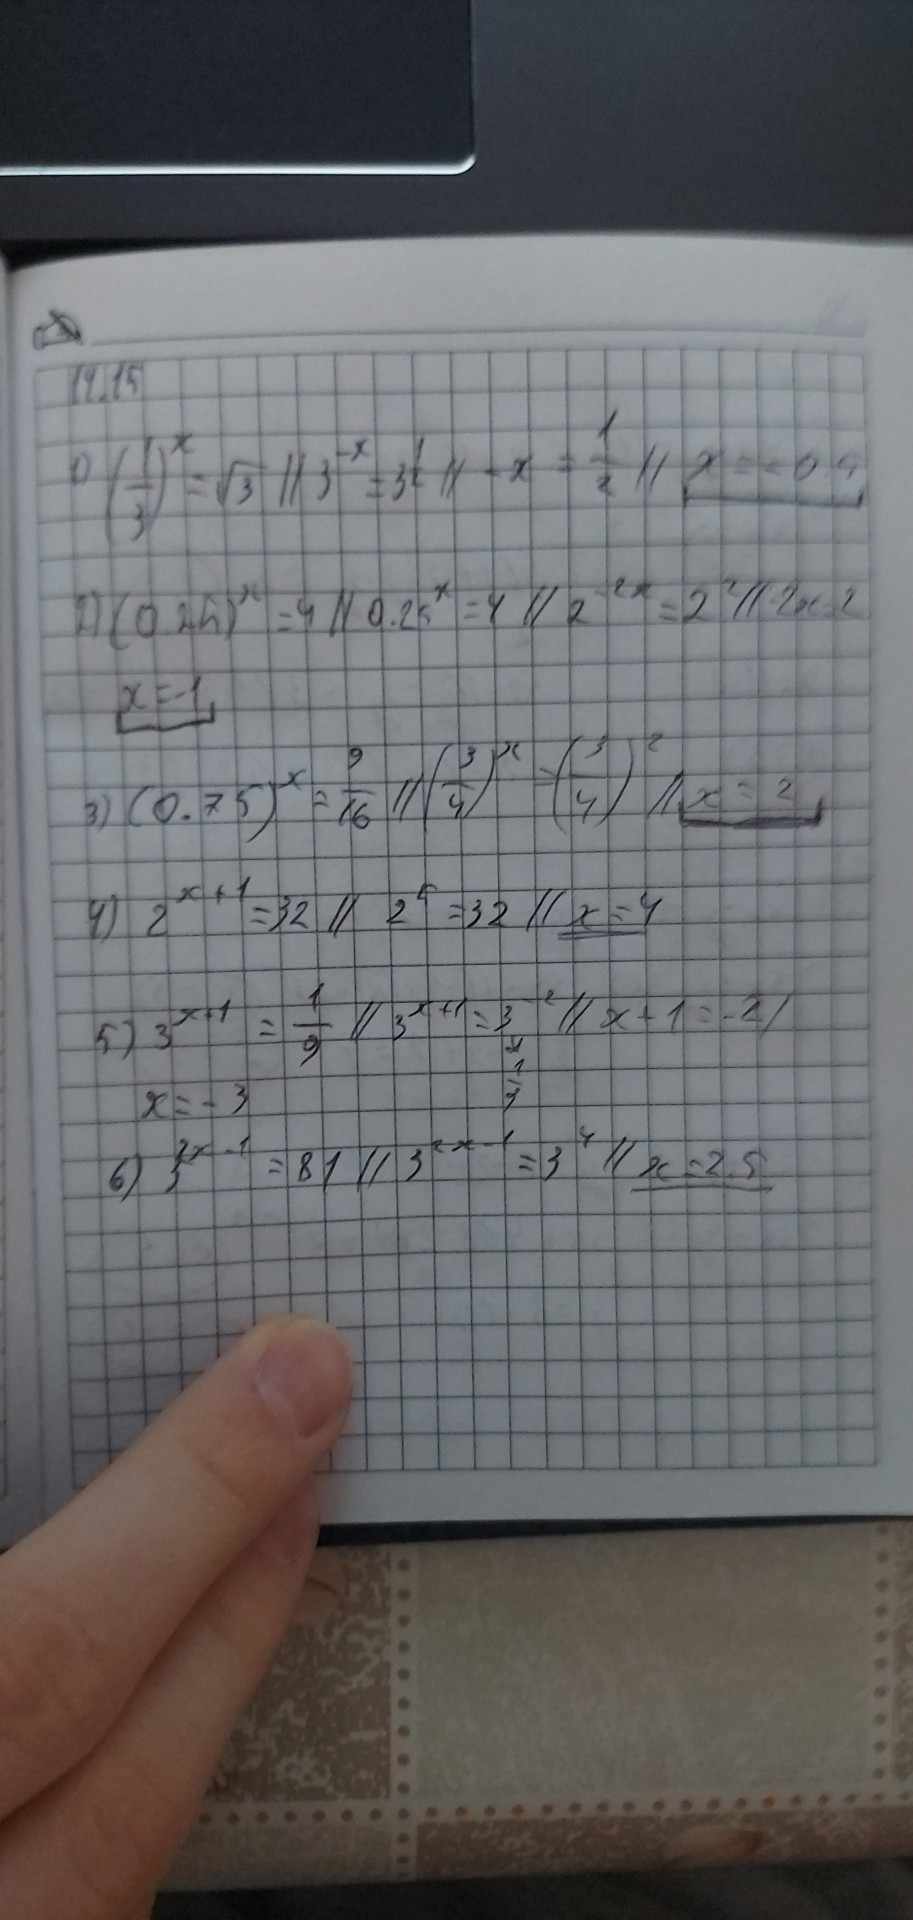 14.15
1) (1/3)^x = √3 // 3^-x = 3^½ // -x = 1/2 // x = -0.5
2) (0.25)^x = 4 // 0.25^x = 4 // 2^-2x = 2^2 // -2x=2
x = -1
3) (0.75)^x = 9/16 // (3/4)^x = (3/4)^2 // x = 2
4) 2^x+1 = 32 // 2^5 = 32 // x = 4
5) 3^x+1 = 1/9 // 3^x+1 = 3^-2 // x + 1 = -2 /
x = -3
6) 3^2x-1 = 81 // 3^2x-1 = 3^4 // x = 2.5